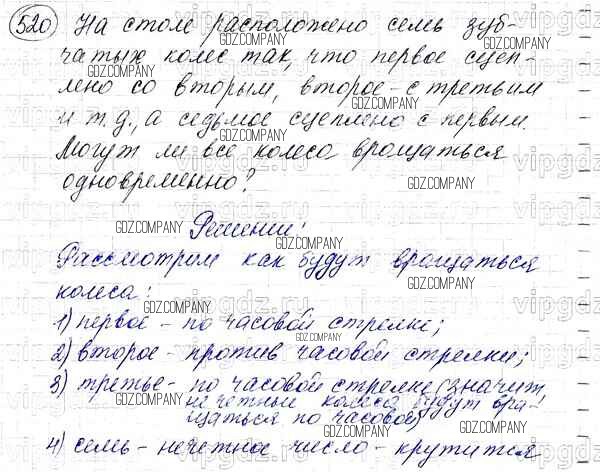 520 На столе расположено семь зуб-
чатых колес так, что первое сцеп-
лено со вторым, второе - с третьим
и т.д., а седьмое сцеплено с первым.
Могут ли все колеса вращаться
одновременно?
Решение:
Рассмотрим как будут вращаться
колеса:
1) первое - по часовой стрелке;
2) второе - против часовой стрелки;
3) третье - по часовой стрелке (значит,
нечетные колеса будут вра-
щаться по часовой)
4) семь - нечетное число - крутится
GDZ.COMPANY
vipgdz.ru